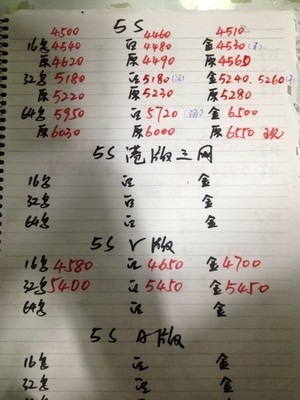 5S
4500 4460 4510
16G 4540 白 4480 金 4530
原 4620 原 4490 原 4560
32G 5180 白 5180 金 5240. 5260
原 5220 原 5230 原 5280
64G 5950 白 5720 金 6500
原 6030 原 6000 原 6550
5S 港版三网
16G 白 金
32G 白 金
64G 白 金
5S V版
16G 4580 白 4650 金 4700
32G 5400 白 5450 金 5450
64G 白 金
5S A版
16G 白 金
32G 白 金